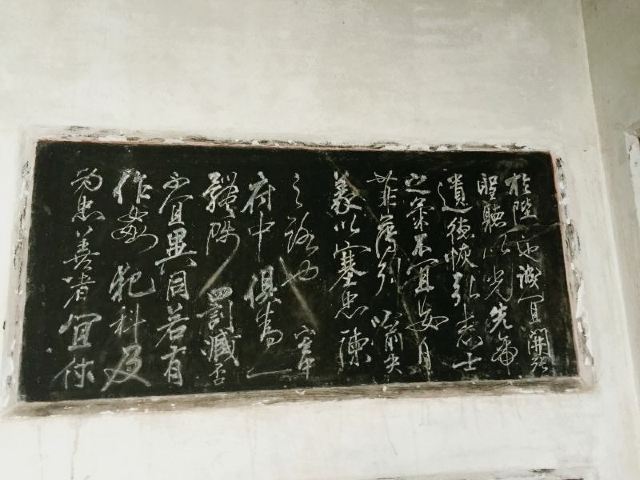 於陛下也誠宜開張
聖聽以光先帝
遺德恢弘志士
之氣不宜妄自
菲薄引喻失
義以塞忠諫
之路也宮中
府中俱為一
體陟罰臧否
不宜異同若有
作姦犯科及
為忠善者宜付